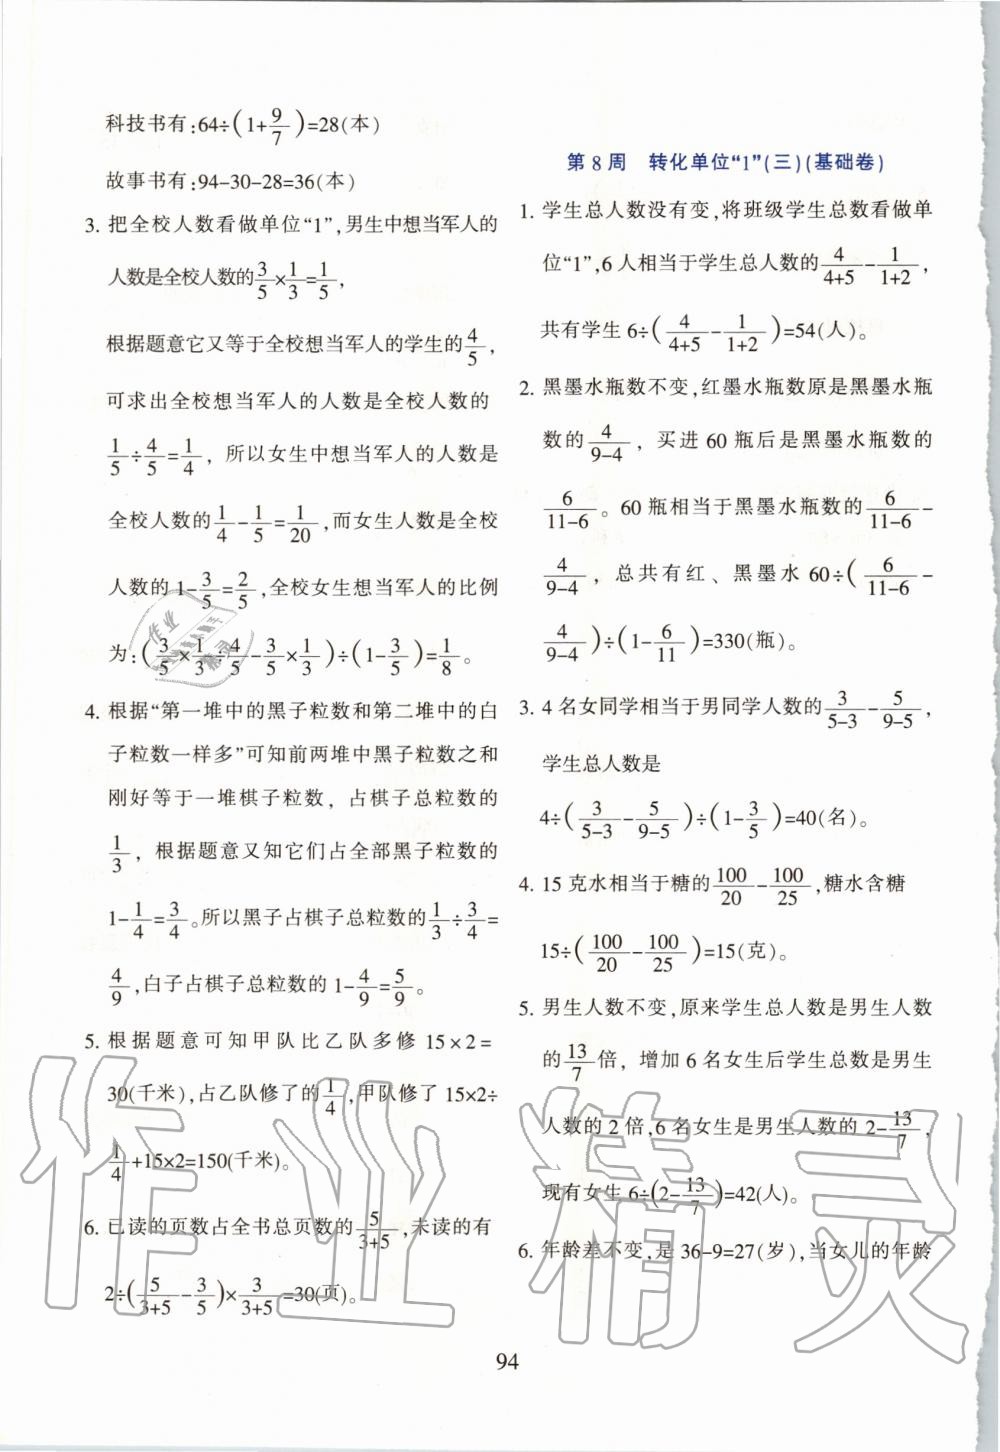 科技书有:64÷(1+9/7)=28(本)
故事书有:94-30-28=36(本)
3. 把全校人数看做单位“1”,男生中想当军人的
人数是全校人数的3/5×1/3=1/5,
根据题意它又等于全校想当军人的学生的4/5,
可求出全校想当军人的人数是全校人数的
1/5÷4/5=1/4，所以女生中想当军人的人数是
全校人数的1/4-1/5=1/20,而女生人数是全校
人数的1-3/5=2/5,全校女生想当军人的比例
为:(3/5×1/3÷4/5-3/5×1/3)÷(1-3/5)=1/8。
4. 根据“第一堆中的黑子粒数和第二堆中的白
子粒数一样多”可知前两堆中黑子粒数之和
刚好等于一堆棋子粒数，占棋子总粒数的
1/3，根据题意又知它们占全部黑子粒数的
1-1/4=3/4。所以黑子占棋子总粒数的1/3÷3/4=
4/9,白子占棋子总粒数的1-4/9=5/9。
5. 根据题意可知甲队比乙队多修15×2=
30(千米),占乙队修了的1/4,甲队修了15×2÷
1/4+15×2=150(千米)。
6. 已读的页数占全书总页数的5/(3+5),未读的有
2÷(5/(3+5)-3/5)×3/(3+5)=30(页)。
第8周 转化单位“1”(三)(基础卷)
1. 学生总人数没有变,将班级学生总数看做单
位“1”,6人相当于学生总人数的4/(4+5)-1/(1+2),
共有学生6÷(4/(4+5)-1/(1+2))=54(人)。
2. 黑墨水瓶数不变,红墨水瓶数原是黑墨水瓶
数的4/(9-4)，买进60瓶后是黑墨水瓶数的
6/(11-6)。60瓶相当于黑墨水瓶数的6/(11-6)-
4/(9-4)，总共有红、黑墨水60÷(6/(11-6)-
4/(9-4))÷(1-6/11)=330(瓶)。
3. 4名女同学相当于男同学人数的3/(5-3)-5/(9-5),
学生总人数是
4÷(3/(5-3)-5/(9-5))÷(1-3/5)=40(名)。
4. 15克水相当于糖的100/20-100/25,糖水含糖
15÷(100/20-100/25)=15(克)。
5. 男生人数不变,原来学生总人数是男生人数
的13/7倍，增加6名女生后学生总数是男生
人数的2倍,6名女生是男生人数的2-13/7,
现有女生6÷(2-13/7)=42(人)。
6. 年龄差不变,是36-9=27(岁),当女儿的年龄
94
作业精灵